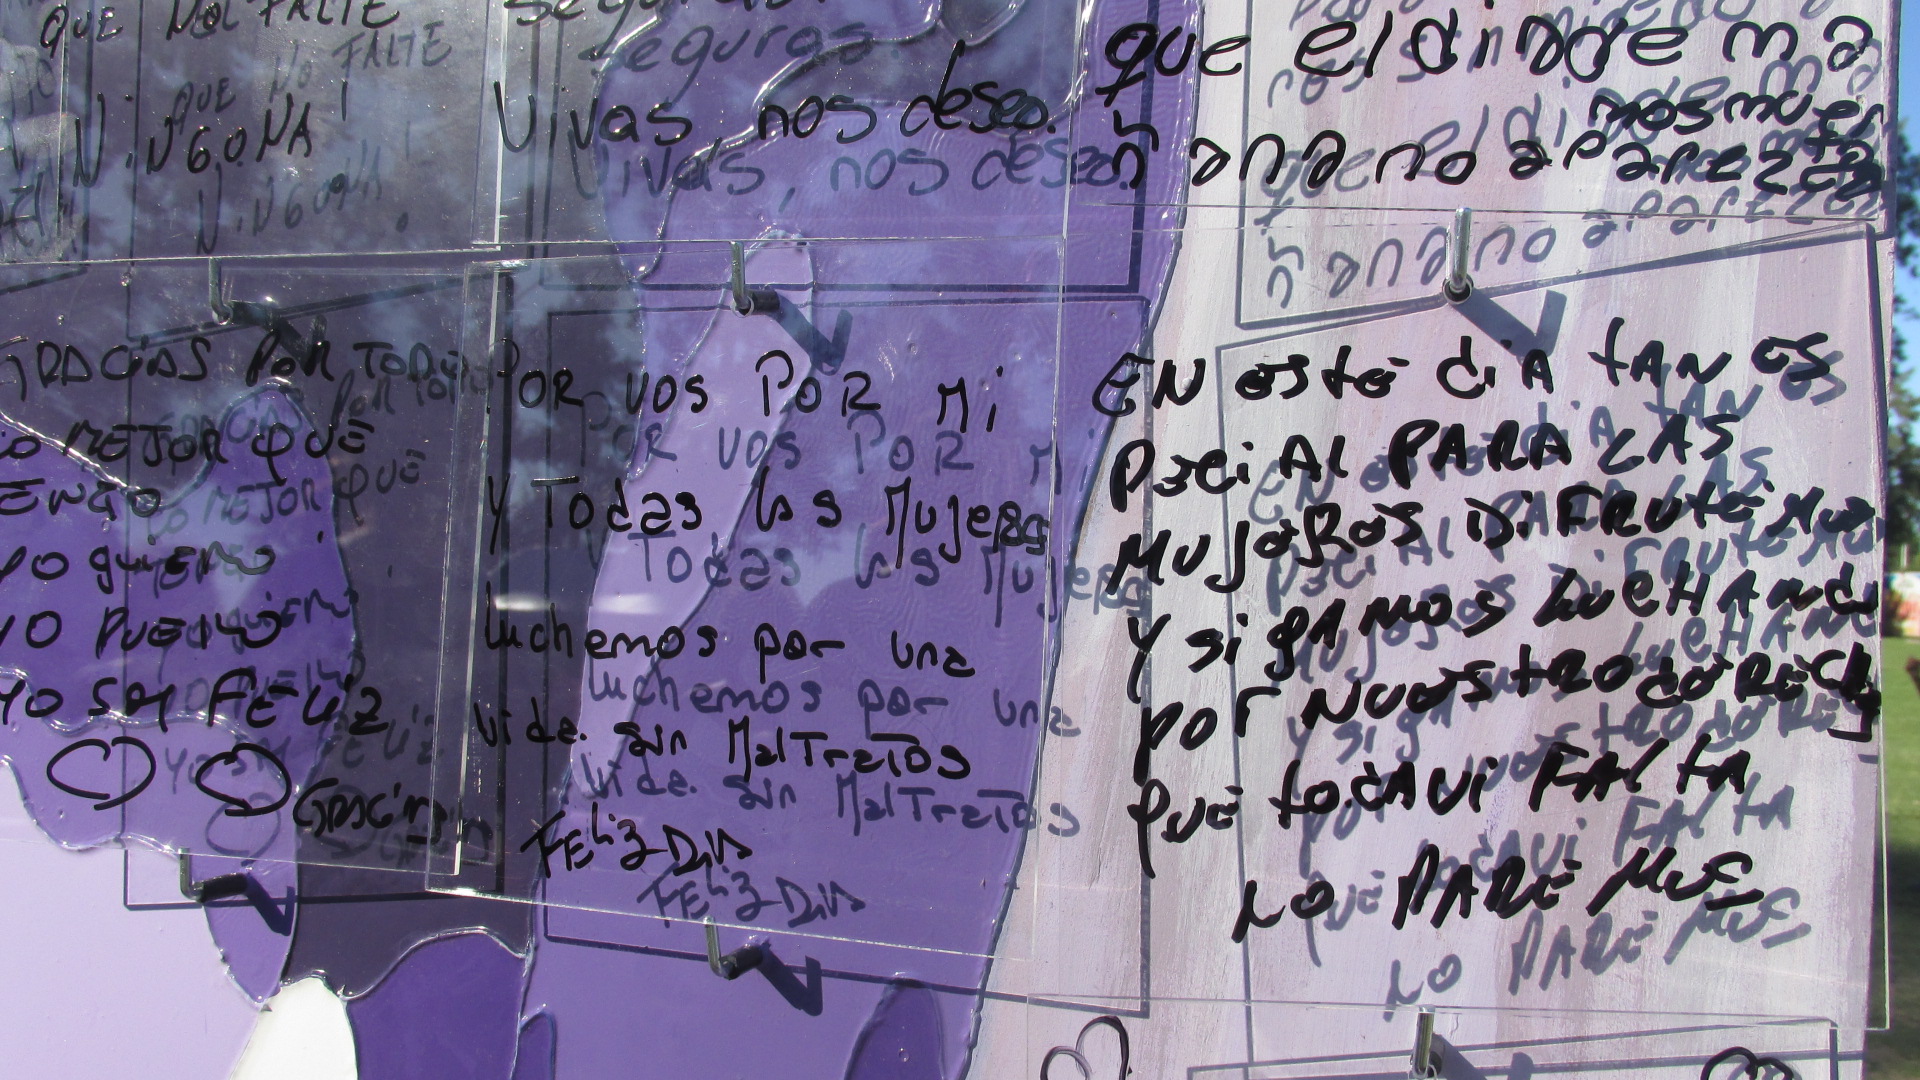 QUE NOL FALTE
NiNGONA
seguras.
Vivas, nos deseo.
que el día de ma
ñana no aparezca
mos muer
GRACIAS POR TODO
LO MEJOR QUE
TENGO
YO quiero
YO PUEDO
YO SOY FELIZ
GRACIAS
POR VOS POR Mi
Y Todas las Mujeres
luchemos por una
vida sin MalTratos
FELiz DiA
EN ESTE diA tAN ES
PECiAl PARA LAS
MUJERES DiFRUTEMOS
Y SiGAMOS LUCHANdo
POr NUEStRO dERECHO
QUE todAVi FALTA
NO PAREMOS